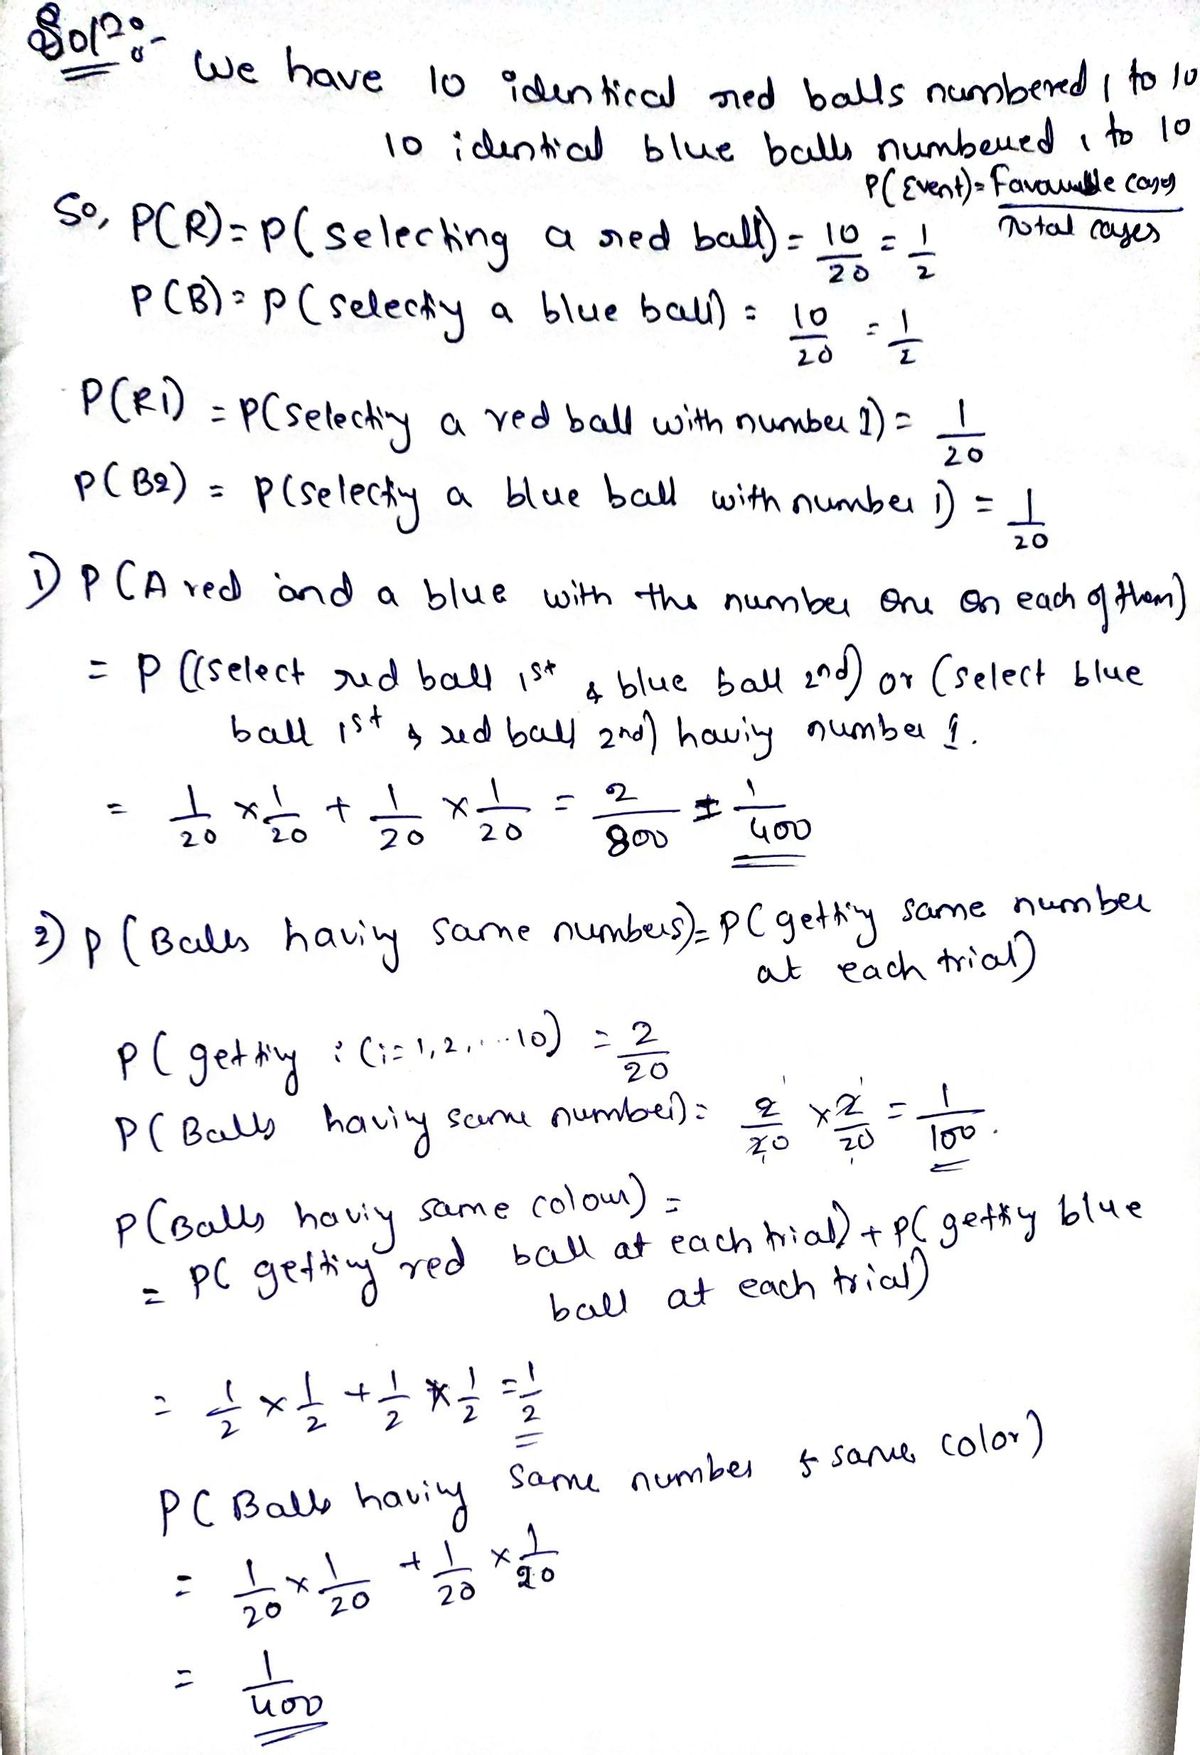 Solⁿ:-
We have 10 identical red balls numbered 1 to 10
10 idential blue balls numbered 1 to 10
P(Event)= Favourable cases / Total cases
So, P(R)= P( selecting a red ball) = 10/20 = 1/2
P(B)= P( selectiy a blue ball) = 10/20 = 1/2
P(R1) = P(selectiy a red ball with number 1) = 1/20
P(B2) = P(selectiy a blue ball with number 1) = 1/20
1) P (A red and a blue with the number One on each of them)
= P ((select red ball 1st & blue ball 2nd) or (select blue
ball 1st & red ball 2nd) haviy number 1.
= 1/20 × 1/20 + 1/20 × 1/20 = 2/800 = 1/400
2) P (Balls haviy same numbers)= P( gettiy same number
at each trial)
P( gettiy i (i= 1,2,....10) = 2/20
P( Balls haviy same number) = 2/20 × 2/20 = 1/100.
P(Balls haviy same colour) =
= P( gettiy red ball at each trial) + P( gettiy blue
ball at each trial)
= 1/2 × 1/2 + 1/2 × 1/2 = 1/2
P( Balls haviy same number & same color)
= 1/20 × 1/20 + 1/20 × 1/20
= 1/400